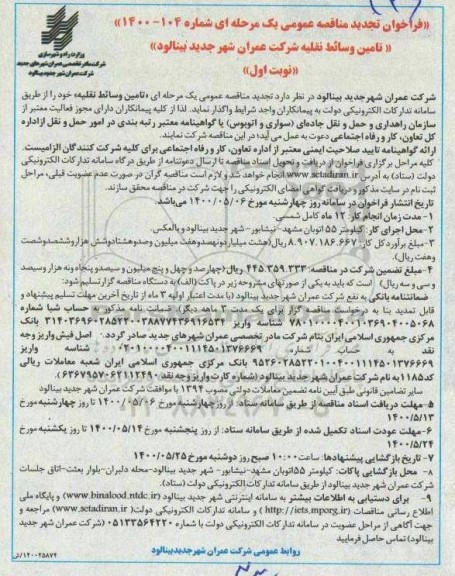 «فراخوان تجدید مناقصه عمومی یک مرحله ای شماره ۱۰۴-۱۴۰۰»
« تامین وسائط نقلیه شرکت عمران شهر جدید بینالود»
«نوبت اول»
وزارت راه و شهرسازی
شرکت مادر تخصصی عمران شهرهای جدید
شرکت عمران شهر جدید بینالود
شرکت عمران شهر جدید بینالود در نظر دارد تجدید مناقصه عمومی یک مرحله ای «تامین وسائط نقلیه» خود را از طریق
سامانه تدارکات الکترونیکی دولت به پیمانکاران واجد شرایط واگذار نماید. لذا از کلیه پیمانکاران دارای مجوز فعالیت معتبر از
سازمان راهداری و حمل و نقل جاده‌ای (سواری و اتوبوس) یا گواهینامه معتبر رتبه بندی در امور حمل و نقل از اداره
کل تعاون، کار و رفاه اجتماعی دعوت به عمل می آید؛ در این مناقصه شرکت نمایند.
ارائه گواهینامه تایید صلاحیت ایمنی معتبر از اداره تعاون، کار و رفاه اجتماعی برای کلیه شرکت کنندگان الزامیست.
کلیه مراحل برگزاری فراخوان از دریافت و تحویل اسناد مناقصه تا ارسال دعوتنامه از طریق درگاه سامانه تدارکات الکترونیکی
دولت (ستاد) به آدرس www.setadiran.ir انجام خواهد شد و لازم است مناقصه گران در صورت عدم عضویت قبلی، مراحل
ثبت نام در سایت مذکور و دریافت گواهی امضای الکترونیکی را جهت شرکت در مناقصه محقق سازند.
تاریخ انتشار فراخوان در سامانه روز چهارشنبه مورخ ۱۴۰۰/۰۵/۰۶ می‌باشد.
۱- مدت زمان انجام کار: ۱۲ ماه کامل شمسی.
۲- محل اجرای کار: کیلومتر ۵۵ اتوبان مشهد- نیشابور- شهر جدید بینالود و بالعکس.
۳- مبلغ برآورد کل کار: ۸.۹۰۷.۱۸۶.۶۶۷ ریال (هشت میلیارد و نهصد و هفت میلیون و صد و هشتاد و شش هزار و ششصد و شصت
و هفت ریال).
۴- مبلغ تضمین شرکت در مناقصه: ۴۴۵.۳۵۹.۳۳۳ ریال (چهارصد و چهل و پنج میلیون و سیصد و پنجاه و نه هزار و سیصد
و سی و سه ریال) است که باید به یکی از صورتهای مشروحه زیر در پاکت (الف) به دستگاه مناقصه گزار تسلیم شود:
ضمانتنامه بانکی به نفع شرکت عمران شهر جدید بینالود (با مدت اعتبار اولیه ۳ ماه از تاریخ آخرین مهلت تسلیم پیشنهاد و
قابل تمدید بنا به درخواست مناقصه گزار برای یک مدت ۳ ماهه دیگر). ضمانت نامه مذکور به حساب شبا شماره
مرکزی جمهوری اسلامی ایران بنام شرکت مادر تخصصی عمران شهرهای جدید صادر گردد.- اصل فیش واریز وجه
نقد به حساب شماره
مرکزی جمهوری اسلامی ایران شعبه معاملات ریالی
کد ۱۱۸۵ به نام شرکت عمران شهر جدید بینالود
سایر تضامین قانونی طبق آیین نامه تضمین معاملات دولتی مصوب ۱۳۹۴ با موافقت شرکت عمران شهر جدید بینالود
۵- مهلت دریافت اسناد مناقصه از طریق سامانه ستاد: از روز چهارشنبه مورخ ۱۴۰۰/۰۵/۰۶ تا روز چهارشنبه مورخ
۱۴۰۰/۵/۱۳
۶- مهلت عودت اسناد تکمیل شده از طریق سامانه ستاد: از روز پنجشنبه مورخ ۱۴۰۰/۵/۱۴ تا روز یکشنبه مورخ
۱۴۰۰/۵/۲۴
۷- تاریخ بازگشایی پیشنهادها: ساعت ۱۰:۰۰ صبح روز دوشنبه مورخ ۱۴۰۰/۵/۲۵
۸- محل بازگشایی پاکات: کیلومتر ۵۵ اتوبان مشهد-نیشابور- شهر جدید بینالود-محله دلبران-بلوار بعثت-اتاق جلسات
شرکت عمران شهر جدید بینالود از طریق سامانه تدارکات الکترونیکی دولت (ستاد).
۹- برای دستیابی به اطلاعات بیشتر به سامانه اینترنتی شهر جدید بینالود (www.binalood.ntdc.ir) و پایگاه ملی
اطلاع رسانی مناقصات (http://iets.mporg.ir) و سامانه تدارکات الکترونیکی دولت (www.setadiran.ir) مراجعه و
جهت آگاهی از مراحل عضویت در سامانه تدارکات الکترونیکی دولت با شماره ۰۵۱۳۳۵۶۴۲۲۰ (شرکت عمران شهر جدید
بینالود) تماس حاصل فرمایید
روابط عمومی شرکت عمران شهر جدید بینالود
۱۴۰۰۲۵۸۷۴/ش